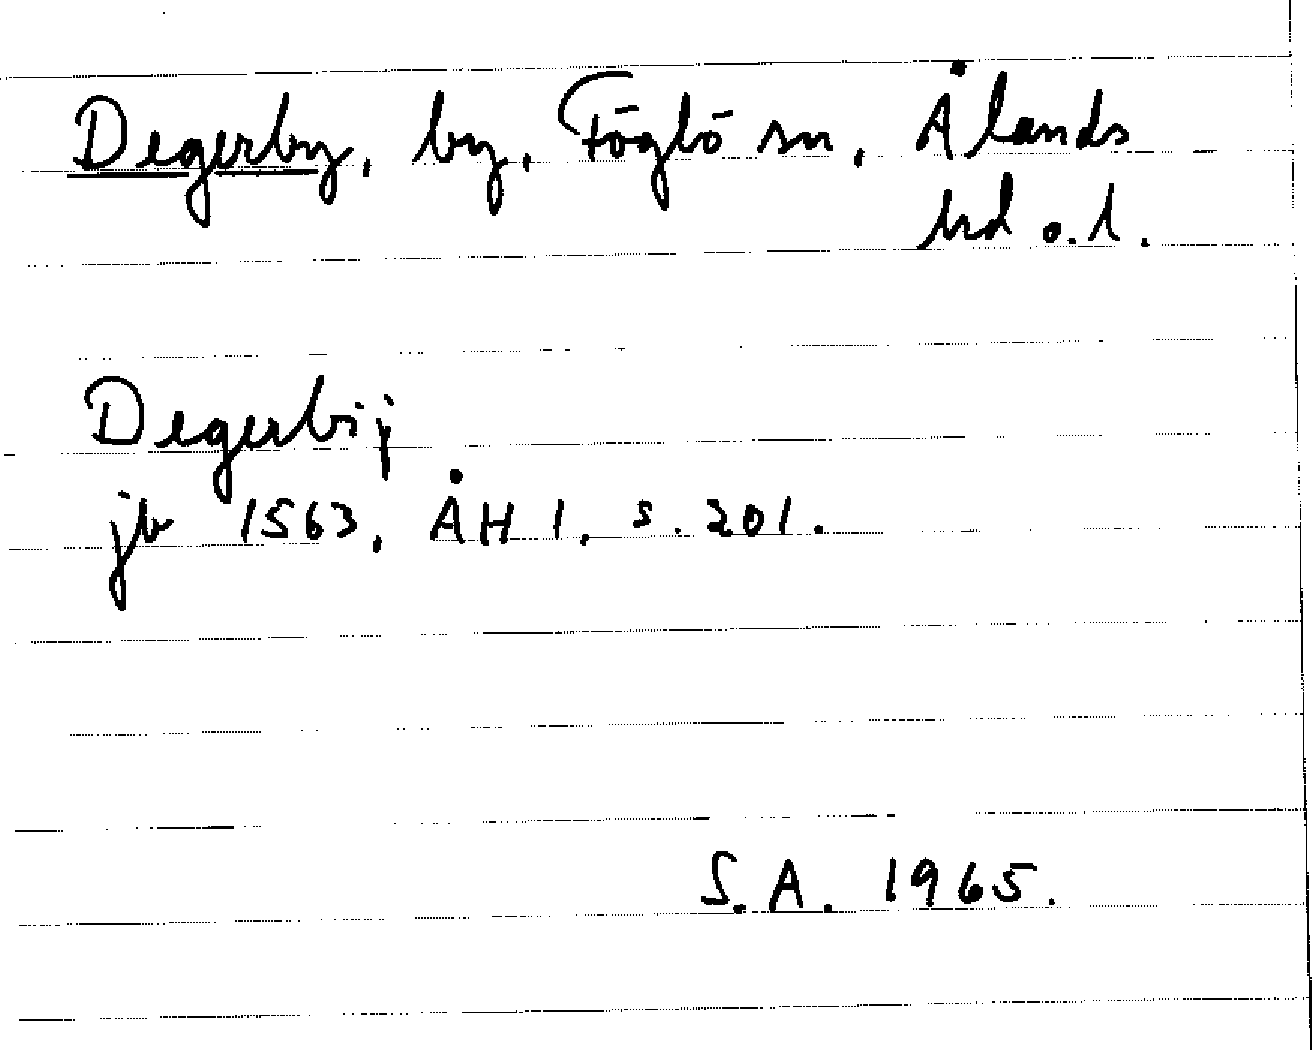 Degerby, by, Föglö sn, Ålands
hd o. l.
Degerbij
jb 1563, ÅH I, s. 201.
S.A. 1965.